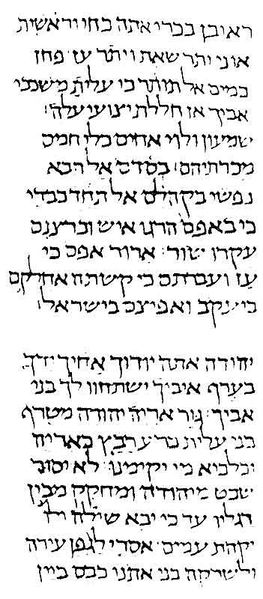 ראובן בכרי אתה כחי וראשית
אוני יתר שאת ויתר עז · פחז
כמים אל תותר כי עלית משכבי
אביך אז חללת יצועי עלה:
שמעון ולוי אחים כלי חמס
מכרתיהם: בסדם אל תבא
נפשי בקהלם אל תחד כבדי
כי באפם הרגו איש וברצנם
עקרו שור · ארור אפם כי
עז ועברתם כי קשתה אחלקם
ביעקב ואפיצם בישראל:
יהודה אתה יודוך אחיך ידך
בערף איביך ישתחוו לך בני
אביך · גור אריה יהודה מטרף
בני עלית כרע רבץ כאריה
וכלביא מי יקימנו · לא יסור
שבט מיהודה ומחקק מבין
רגליו עד כי יבא שילה ולו
יקהת עמים · אסרי לגפן עירה
ולשרקה בני אתנו כבס ביין